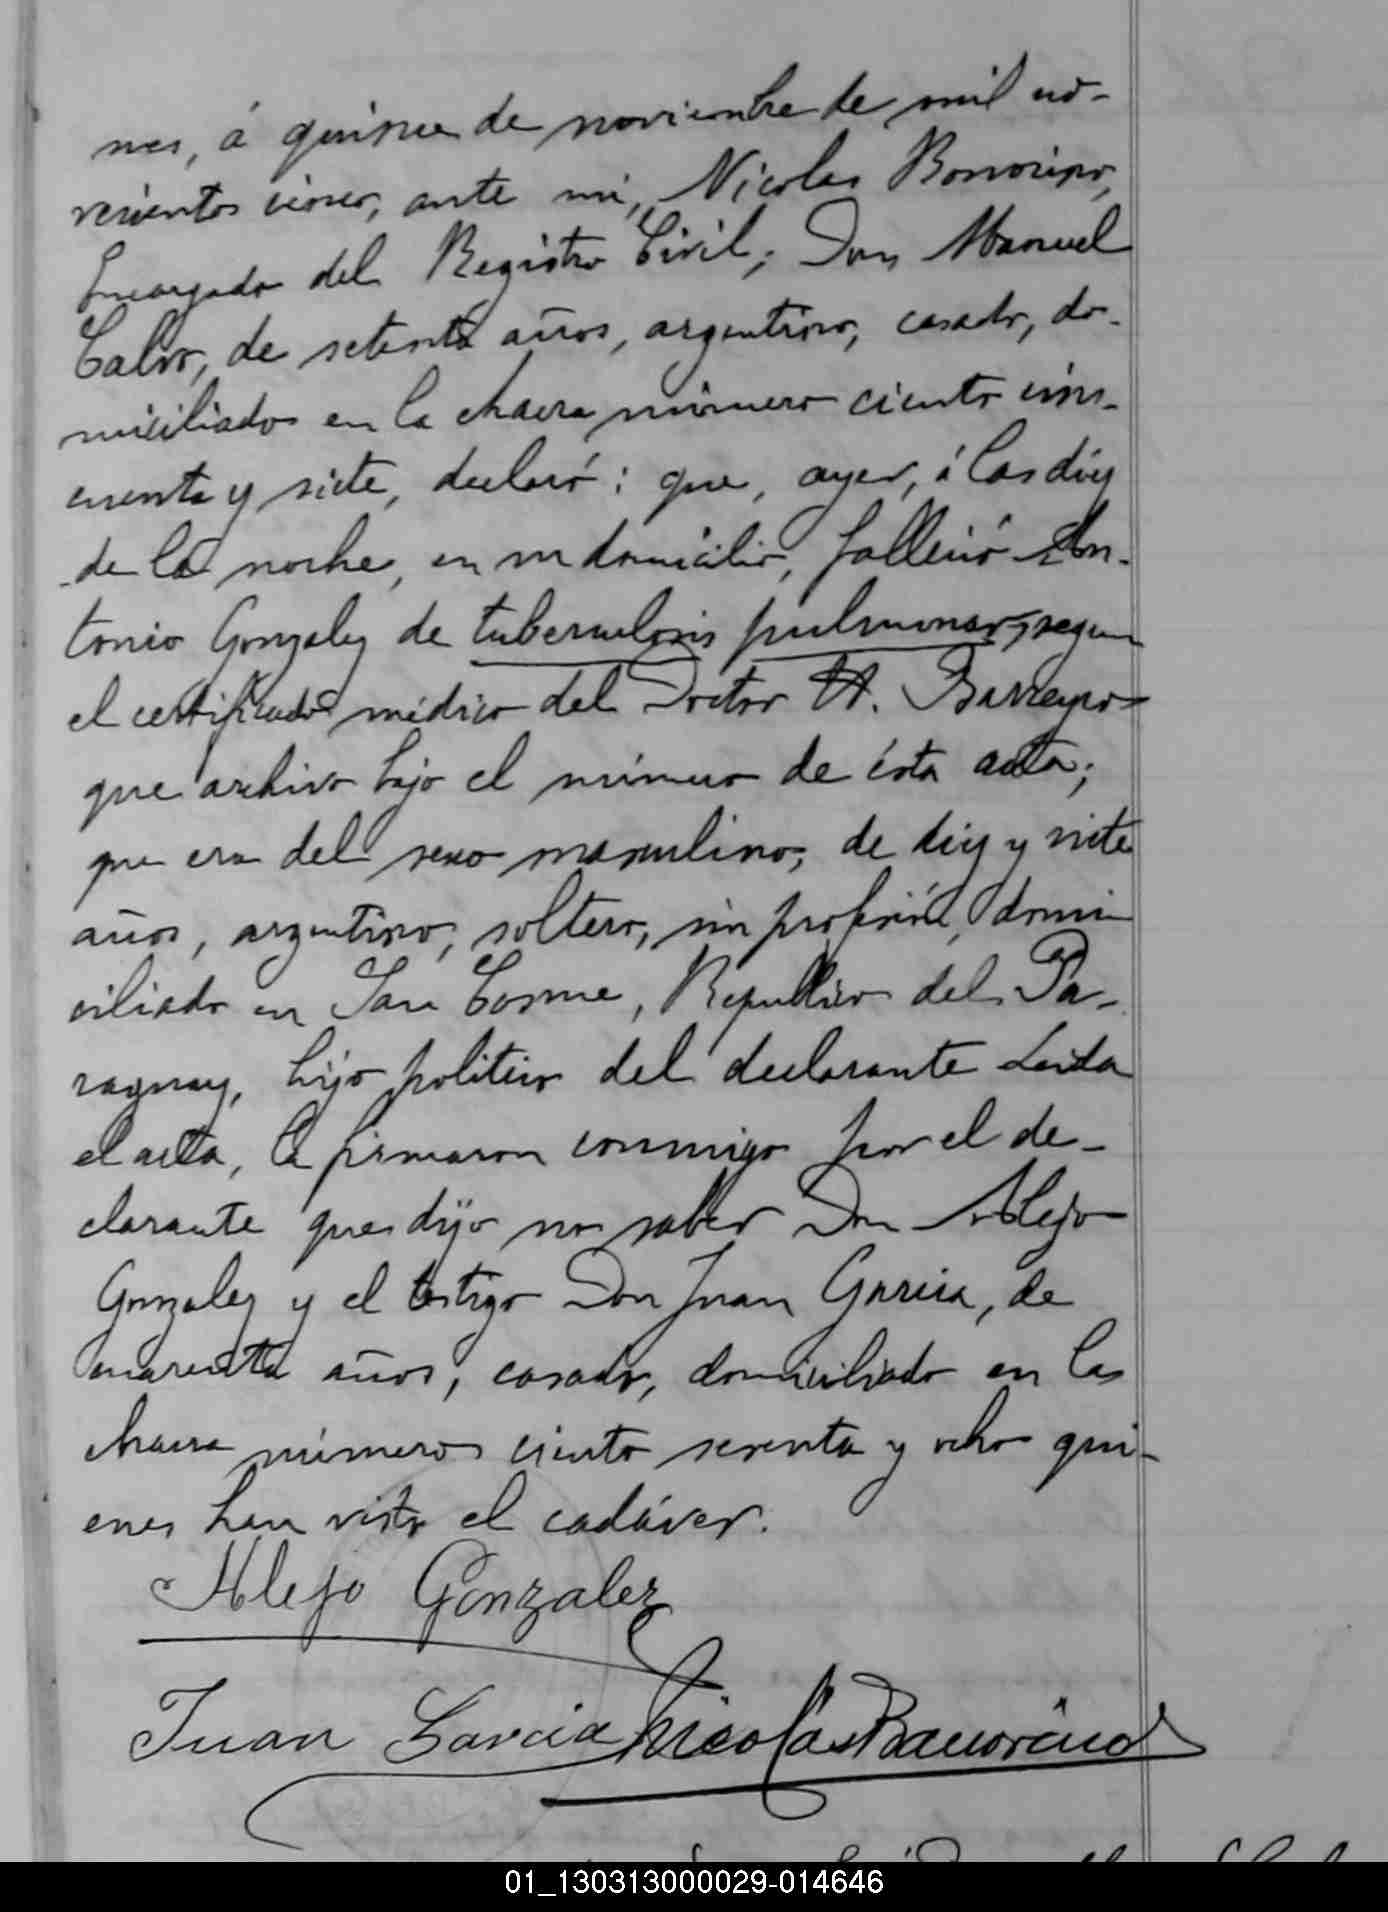 nes, á quince de noviembre de mil no-
vecientos cinco, ante mi, Nicolas Bonorino,
Encargado del Registro Civil; Don Manuel
Calvo, de setenta años, argentino, casado, do-
miciliado en la chacra número ciento cin-
cuenta y siete, declaró: que, ayer, á las diez
de la noche, en su domicilio, falleció An-
tonio Gonzalez de tuberculosis pulmonar, segun
el certificado médico del Doctor A. Barreyro
que archivo bajo el número de ésta acta;
que era del sexo masculino, de diez y siete
años, argentino, soltero, sin profesión, domi
ciliado en San Cosme, Republica del Pa-
raguay, hijo politico del declarante Leida
el acta, la firmaron conmigo por el de-
clarante que dijo no saber Don Alejo
Gonzalez y el testigo Don Juan Garcia, de
cuarenta años, casado, domiciliado en la
chacra número ciento sesenta y ocho qui-
enes han visto el cadáver.
Alejo Gonzalez
Juan Garcia Nicolás Bonorino
01_130313000029-014646